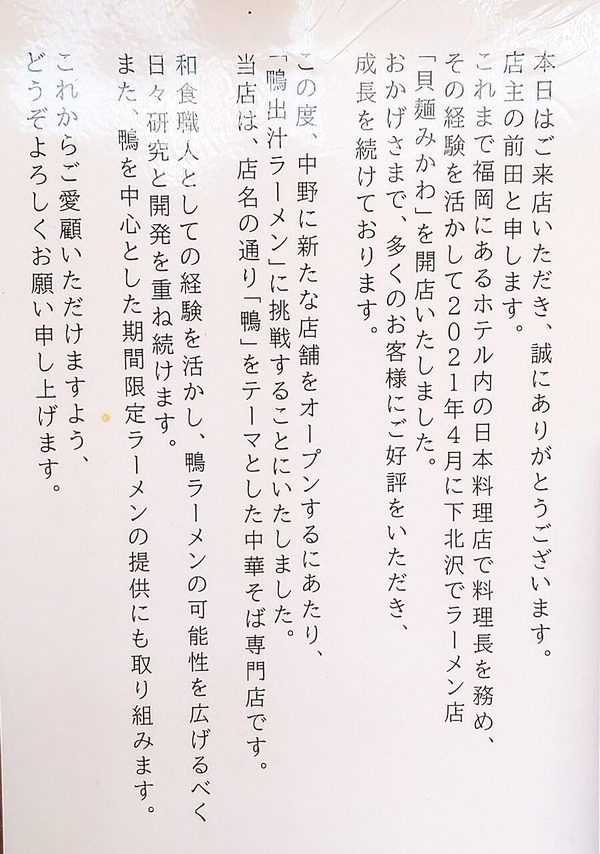 本日はご来店いただき、誠にありがとうございます。
店主の前田と申します。
これまで福岡にあるホテル内の日本料理店で料理長を務め、
その経験を活かして2021年4月に下北沢でラーメン店
「貝麺みかわ」を開店いたしました。
おかげさまで、多くのお客様にご好評をいただき、
成長を続けております。
この度、中野に新たな店舗をオープンするにあたり、
「鴨出汁ラーメン」に挑戦することにいたしました。
当店は、店名の通り「鴨」をテーマとした中華そば専門店です。
和食職人としての経験を活かし、鴨ラーメンの可能性を広げるべく
日々研究と開発を重ね続けます。
また、鴨を中心とした期間限定ラーメンの提供にも取り組みます。
これからご愛顧いただけますよう、
どうぞよろしくお願い申し上げます。